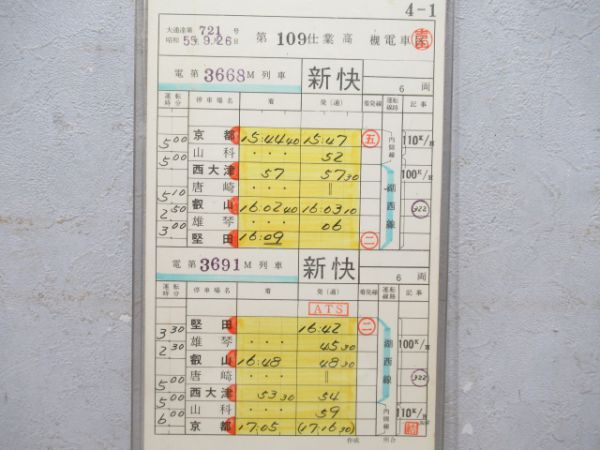 4-1
大運達第 721 号
昭和 53.9.26日
第 109 仕業 高 機電車
電 第 3668 M 列車 新快 6 両
運転時分 停車場名 着 発(通) 着発線 運転線路 記事
京都 15:44 40 15:47 五 内側線 110K/H
5 00 山科 ・・・ 52
西大津 57 57 30 湖西線 100K/H
5 00 唐崎 ・・・ ‖
5 10 叡山 16:02 40 16:03 10 322
2 50 雄琴 ・・・ 06
3 00 堅田 16:09 二
電 第 3691 M 列車 新快 6 両
運転時分 停車場名 着 発(通) 着発線 運転線路 記事
ATS
堅田 16:42 二 湖西線 100K/H
3 30 雄琴 ・・・ 45 30
2 30 叡山 16:48 48 30
唐崎 ・・・ ‖ 322
5 00 西大津 53 30 54
5 00 山科 ・・・ 59 内側線 110K/H
6 00 京都 17:05 (17:16 30)
作成 照合